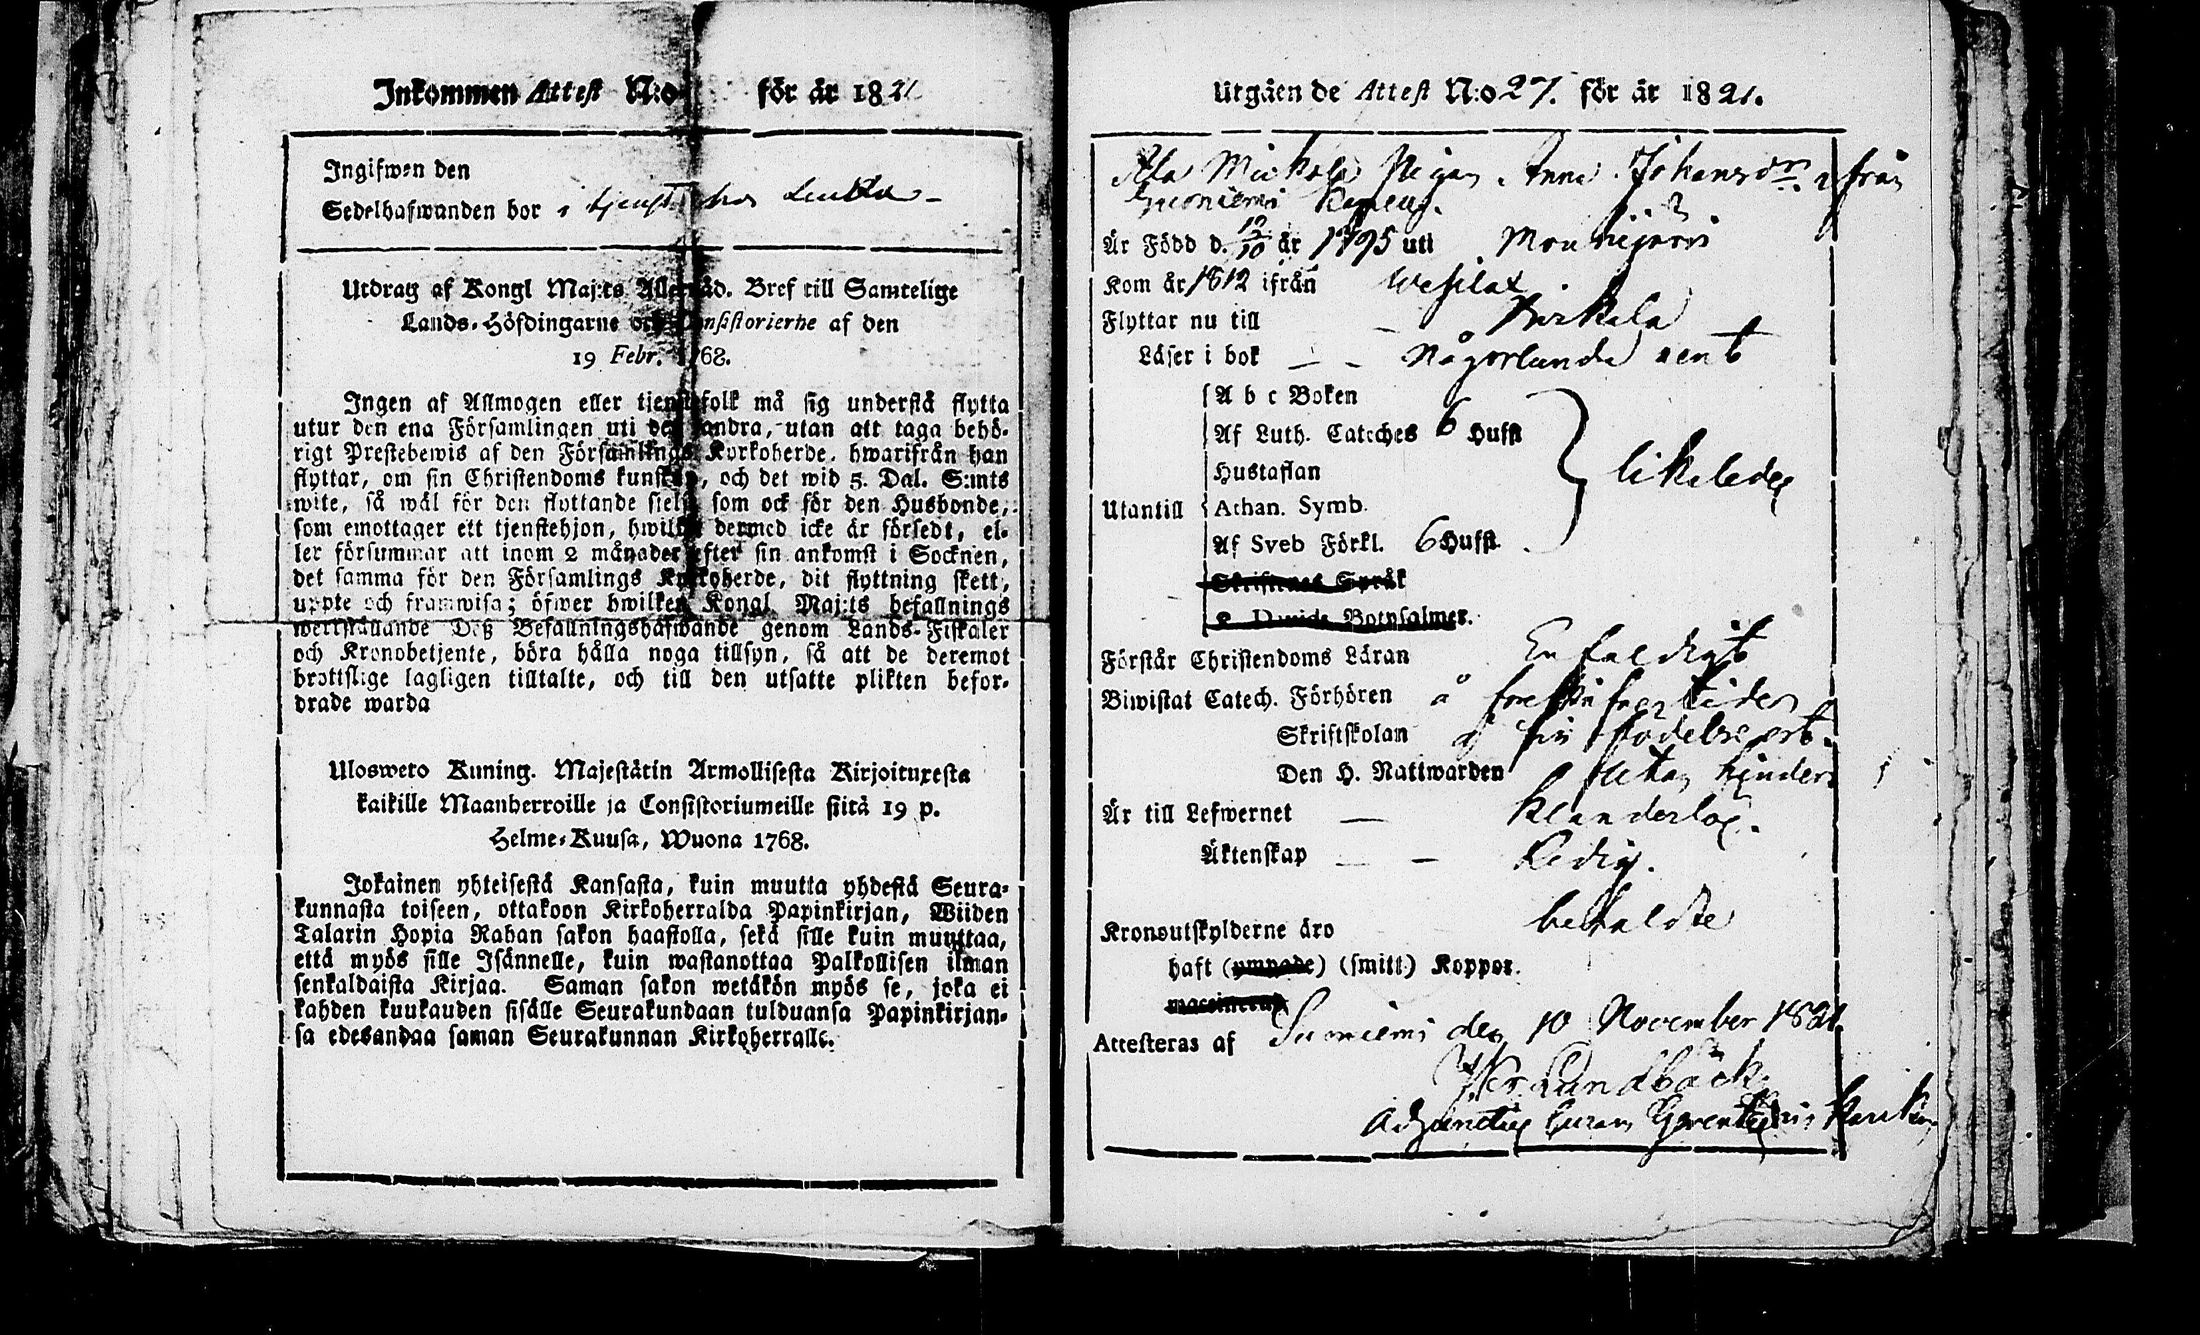 Inkommen Attest N:o för år 1821
Ingifwen den
Sedelhafwanden bor i tjenst hos
Utdrag af Kongl Maj:ts Allernåd. Bref till Samtelige
Lands-Höfdingarne och Consistorierne af den
19 Febr. 1768.
Ingen af Allmogen eller tjenstefolk må sig understå flytta
utur den ena Församlingen uti den andra, utan att taga behö-
rigt Prestebewis af den Församlings Kyrkoherde, hwarifrån han
flyttar, om sin Christendoms kunskap, och det wid 5. Dal. S:mts
wite, så wäl för den flyttande sielf, som ock för den Husbonde,
som emottager ett tjenstehjon, hwilket dermed icke är försedt, el-
ler försummar att inom 2 månader efter sin ankomst i Socknen,
det samma för den Församlings Kyrkoherde, dit flyttning skett,
uppte och framwisa; öfwer hwilken Kongl. Maj:ts befallnings
werkställande Deß Befallningshafwande genom Lands-Fiskaler
och Kronobetjente, böra hålla noga tillsyn, så att de deremot
brottslige lagligen tilltalte, och till den utsatte plikten befor-
drade warda
Ulosweto Kuning. Majestätin Armollisesta Kirjoituxesta
kaikille Maanherroille ja Consistoriumeille siitä 19 p.
Helme-Kuusa, Wuona 1768.
Jokainen yhteisestä Kansasta, kuin muutta yhdestä Seura-
kunnasta toiseen, ottakoon Kirkoherralda Papinkirjan, Wiiden
Talarin Hopia Rahan sakon haastolla, sekä sille kuin muuttaa,
että myös sille Isännelle, kuin wastanottaa Palkollisen ilman
senkaldaista Kirjaa. Saman sakon wetäkön myös se, joka ei
kahden kuukauden sisälle Seurakundaan tulduansa Papinkirjan-
sa edesandaa saman Seurakunnan Kirkoherralle.
Utgåen de Attest N:o 27. för år 1821.
Ala Mickola Pigan Anna Johansdr från
Suoniemi Kapell.
Är Född d. 12/10 år 1795 uti Mouhijärvi
Kom år 1812 ifrån Wesilax
Flyttar nu till Birkala
Läser i bok någorlunda rent
A b c Boken
Af Luth. Cateches 6 Hufst
Hustaflan
Utantill Athan. Symb.
Af Sveb Förkl. 6 Hufst.
likaledes
Skriftenes Språk
K. Davids Botpsalmer.
Förstår Christendoms Läran Enfaldigt
Biwistat Catech. Förhören å föreskrifna tider
Skriftskolan å sin födelse ort.
Den H. Nattwarden Utan hinder
Är till Lefwernet klanderlös.
Äktenskap Ledig.
Kronoutskylderne äro betaldte
haft (ympade) (smitt) Koppor.
Attesteras af Suoniemi den 10 November 1821
Lundbäck
Adjunctus Curam Gerens